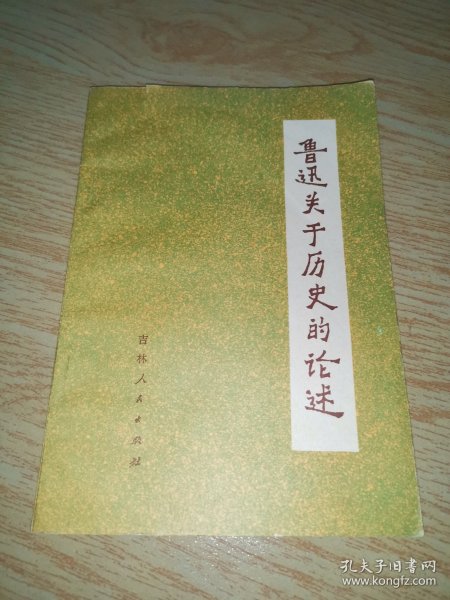 鲁迅关于历史的论述
吉林人民出版社
孔夫子旧书网
www.kongfz.com